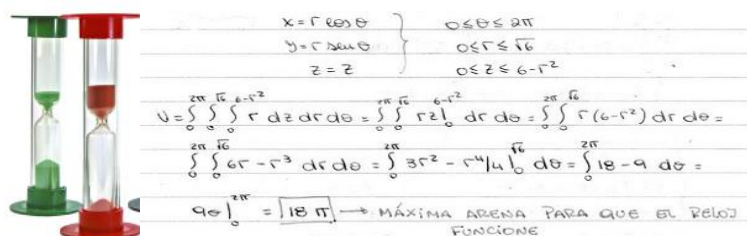 x = r cos θ } 0 ≤ θ ≤ 2π
y = r sen θ } 0 ≤ r ≤ √6
z = z } 0 ≤ z ≤ 6-r²
V = ∫₀^2π ∫₀^√6 ∫₀^6-r² r dz dr dθ = ∫₀^2π ∫₀^√6 rz|₀^6-r² dr dθ = ∫₀^2π ∫₀^√6 r(6-r²) dr dθ =
∫₀^2π ∫₀^√6 6r - r³ dr dθ = ∫₀^2π 3r² - r⁴/4|₀^√6 dθ = ∫₀^2π 18 - 9 dθ =
9θ|₀^2π = 18 π → MÁXIMA ARENA PARA QUE EL RELOJ
FUNCIONE